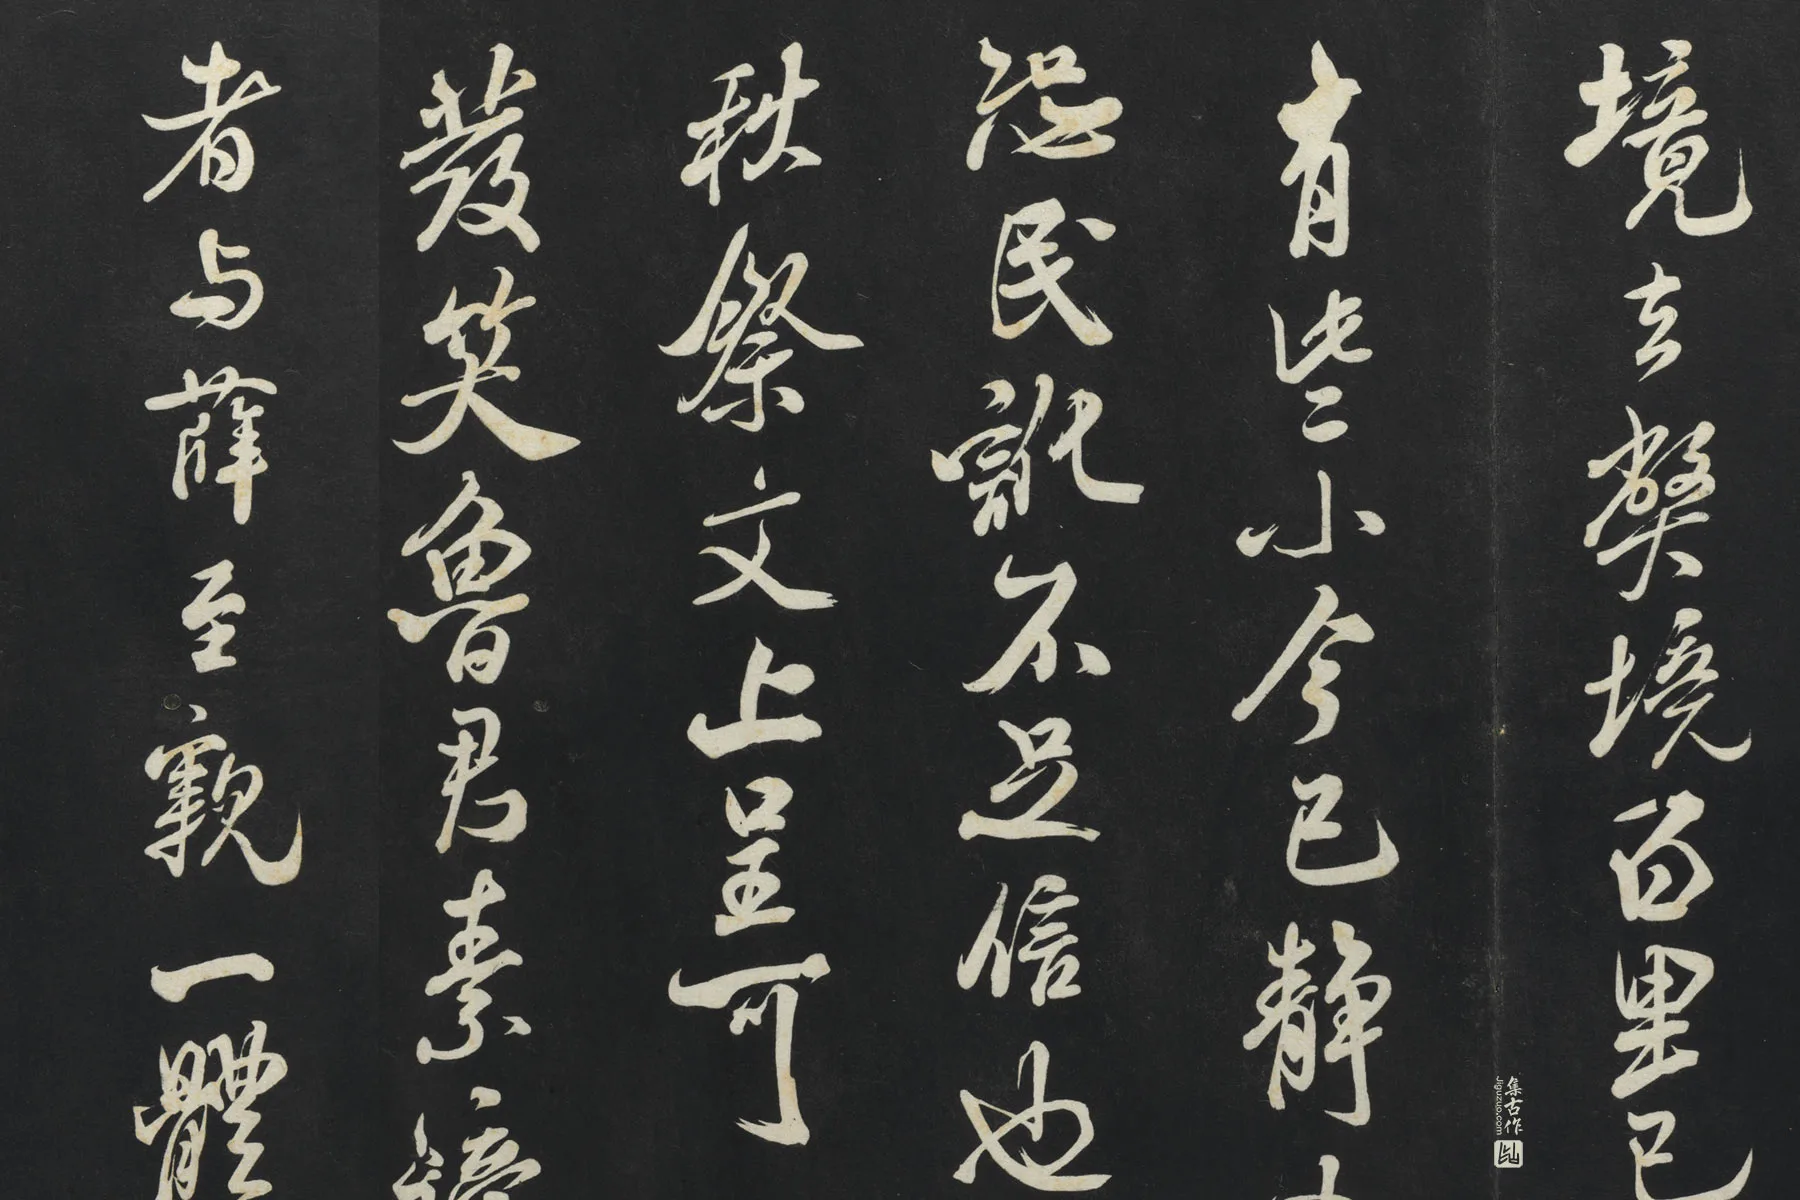 境去獘境百里已
有些小今已靜
民訛不足信也
秋祭文上呈可
發笑魯君素
者与薛至親一體
集古作
jiguzuo.com